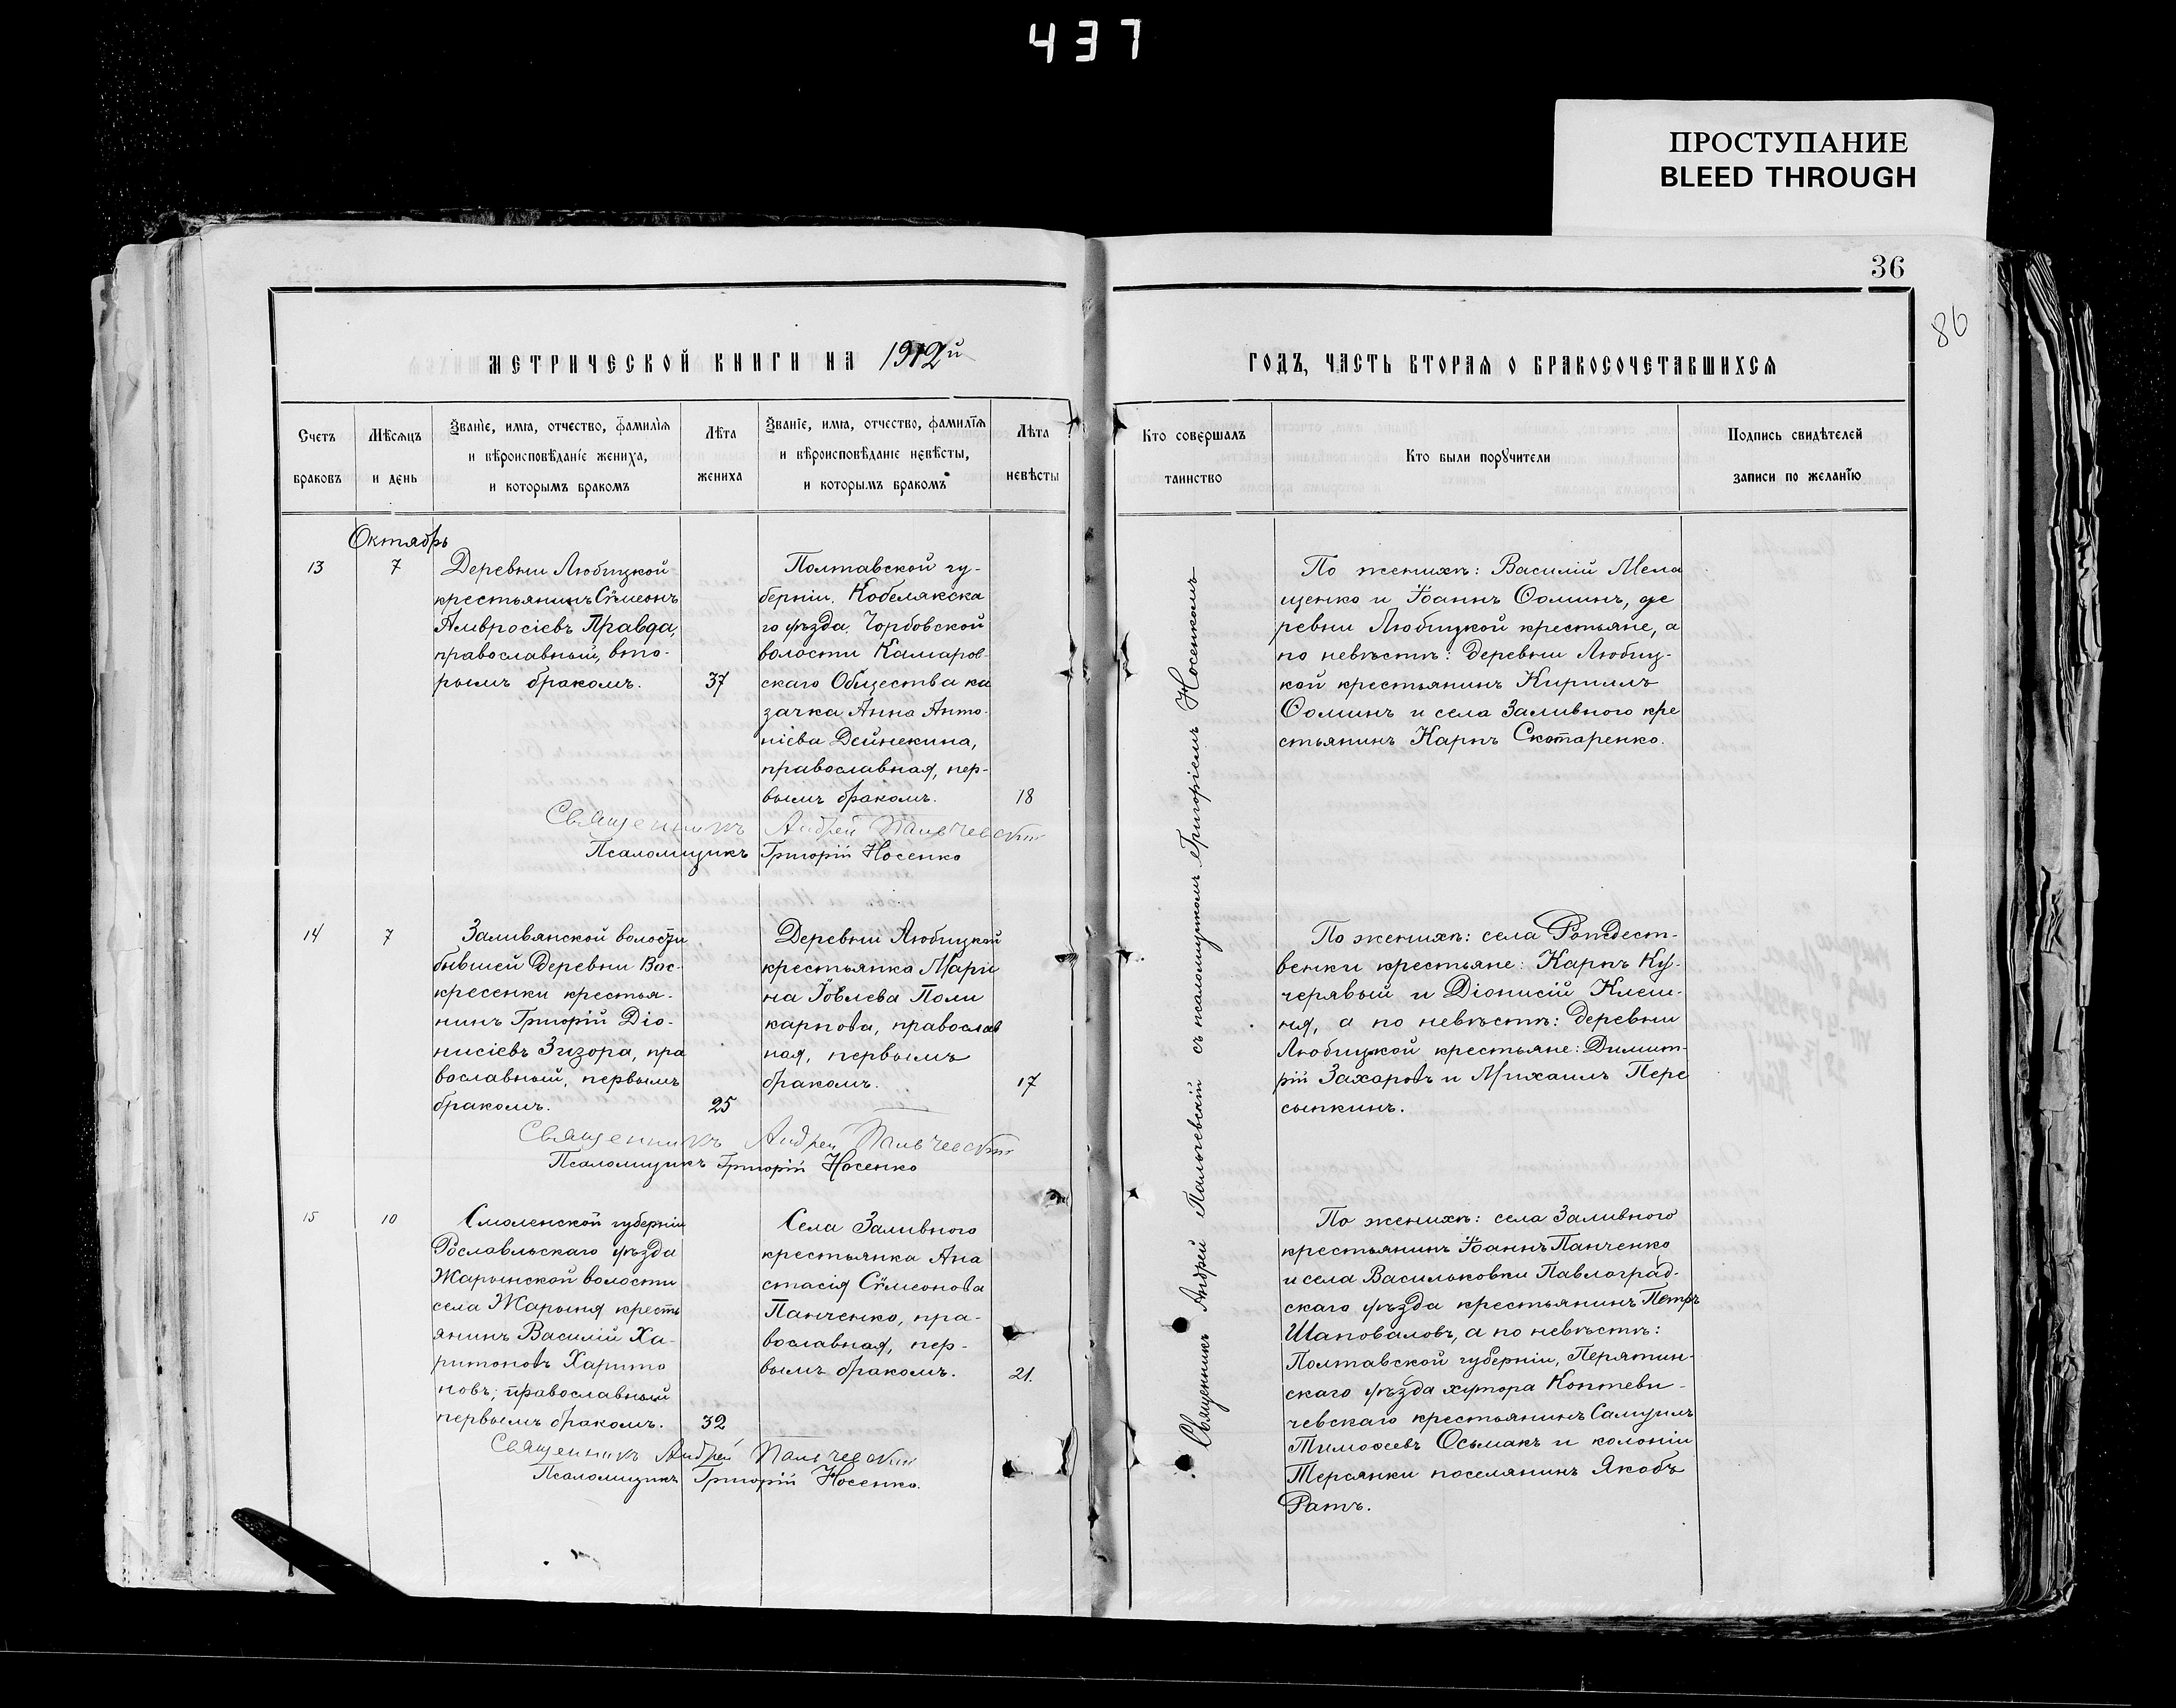 437
ПРОСТУПАНИЕ
BLEED THROUGH
36
86
МЕТРИЧЕСКОЙ КНИГИ НА 1912й
ГОДЪ, ЧАСТЬ ВТОРАЯ О БРАКОСОЧЕТАВШИХСЯ
Счетъ
браковъ
Мѣсяцъ
и день
Званіе, имя, отчество, фамилія
и вѣроисповѣданіе жениха,
и которымъ бракомъ
Лѣта
жениха
Званіе, имя, отчество, фамилія
и вѣроисповѣданіе невѣсты,
и которымъ бракомъ
Лѣта
невѣсты
Кто совершалъ
таинство
Кто были поручители
Подпись свидѣтелей
записи по желанію
Октябрь
13
7
Деревни Любицкой
крестьянинъ Сѵмеонъ
Амвросіевъ Правда,
православный, вто-
рымъ бракомъ.
37
Полтавской гу-
берніи, Кобелякска
го уѣзда, Чорбовской
волости Камаров-
скаго Общества ка
зачка Анна Анто-
ніева Дейнекина,
православная, пер-
вымъ бракомъ.
18
Священникъ Андрей Пальчевскій
Псаломщикъ Григорій Носенко
По женихѣ: Василій Мела
щенко и Іоаннъ Ѳоминъ, де
ревни Любицкой крестьяне, а
по невѣстѣ: деревни Любиц-
кой крестьянинъ Кириллъ
Ѳоминъ и села Заливного кре
стьянинъ Карпъ Скотаренко.
14
7
Заливянской волости
бывшей деревни Вос-
кресенки крестья-
нинъ Григорій Діо-
нисіевъ Зизора, пра
вославный, первымъ
бракомъ.
25
Деревни Любицкой
крестьянка Мари
на Іовлева Поли
карпова, православ
ная, первымъ
бракомъ.
17
Священникъ Андрей Пальчевскій
Псаломщикъ Григорій Носенко
По женихѣ: села Рождест-
венки крестьяне: Карпъ Ку-
черявый и Діонисій Клеш-
ня, а по невѣстѣ: деревни
Любицкой крестьяне: Димит-
рій Захаровъ и Михаилъ Пере
сыпкинъ.
15
10
Смоленской губерніи
Рославльскаго уѣзда
Жарынской волости
села Жарыня кресть
янинъ Василій Ха-
ритоновъ Харито
новъ, православный
первымъ бракомъ.
32
Села Заливного
крестьянка Ана
стасія Сѵмеонова
Панченко, пра-
вославная, пер-
вымъ бракомъ.
21.
Священникъ Андрей Пальчевскій
Псаломщикъ Григорій Носенко.
По женихѣ: села Заливного
крестьянинъ Іоаннъ Панченко
и села Васильковки Павлоград-
скаго уѣзда крестьянинъ Петръ
Шаповаловъ, а по невѣстѣ:
Полтавской губерніи, Пирятин-
скаго уѣзда хутора Коптеви-
чевскаго крестьянинъ Самуилъ
Тимоѳеевъ Осьмакъ и колоніи
Терсянки поселянинъ Якобъ
Ратъ.
Священникъ Андрей Пальчевскій съ псаломщикомъ Григоріемъ Носенкомъ